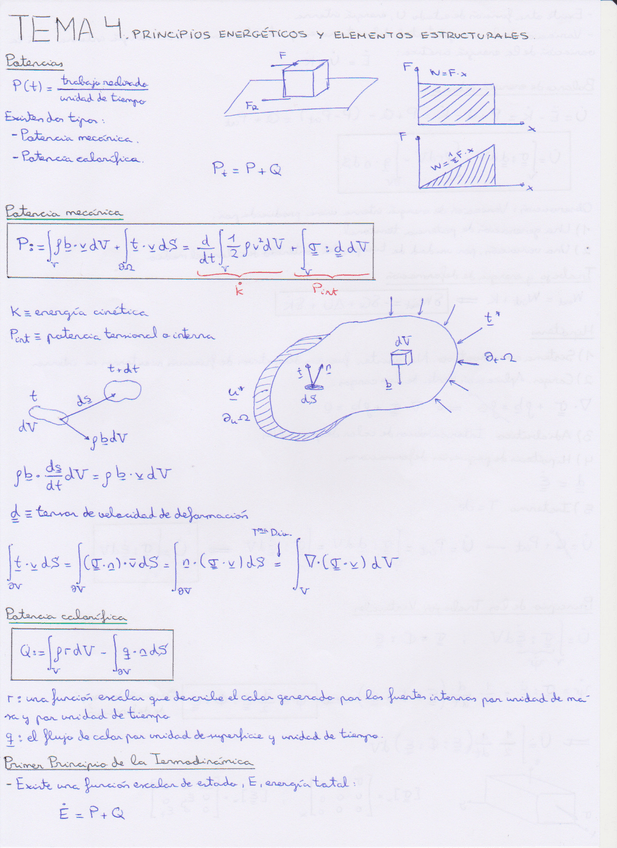 TEMA 4. PRINCIPIOS ENERGÉTICOS Y ELEMENTOS ESTRUCTURALES.
Potencias
P(t) = trabajo realizado / unidad de tiempo
Existen dos tipos:
- Potencia mecánica.
- Potencia calorífica.
F
F_R
P_t = P + Q
F
W = F·x
x
F
W = ½ F·x
x
Potencia mecánica
P := ∫_V ρb·v dV + ∫_∂Ω t·v dS = d/dt ∫_V ½ρv² dV + ∫_V σ : d dV
K̇
P_int
K ≡ energía cinética
P_int ≡ potencia tensional o interna
t
dV
ds
t+dt
ρb dV
u*
∂_uΩ
t
n
dS
dV
b
t*
∂_tΩ
ρb · ds/dt dV = ρb·v dV
d ≡ tensor de velocidad de deformación
∫_∂V t·v dS = ∫_∂V (σ·n)·v dS = ∫_∂V n·(σ·v) dS = ∫_V ∇·(σ·v) dV
Tma Div.
Potencia calorífica
Q := ∫_V ρr dV − ∫_∂V q·n dS
r : una función escalar que describe el calor generado por las fuentes internas por unidad de ma-
sa y por unidad de tiempo
q : el flujo de calor por unidad de superficie y unidad de tiempo.
Primer Principio de la Termodinámica
- Existe una función escalar de estado, E, energía total:
Ė = P + Q